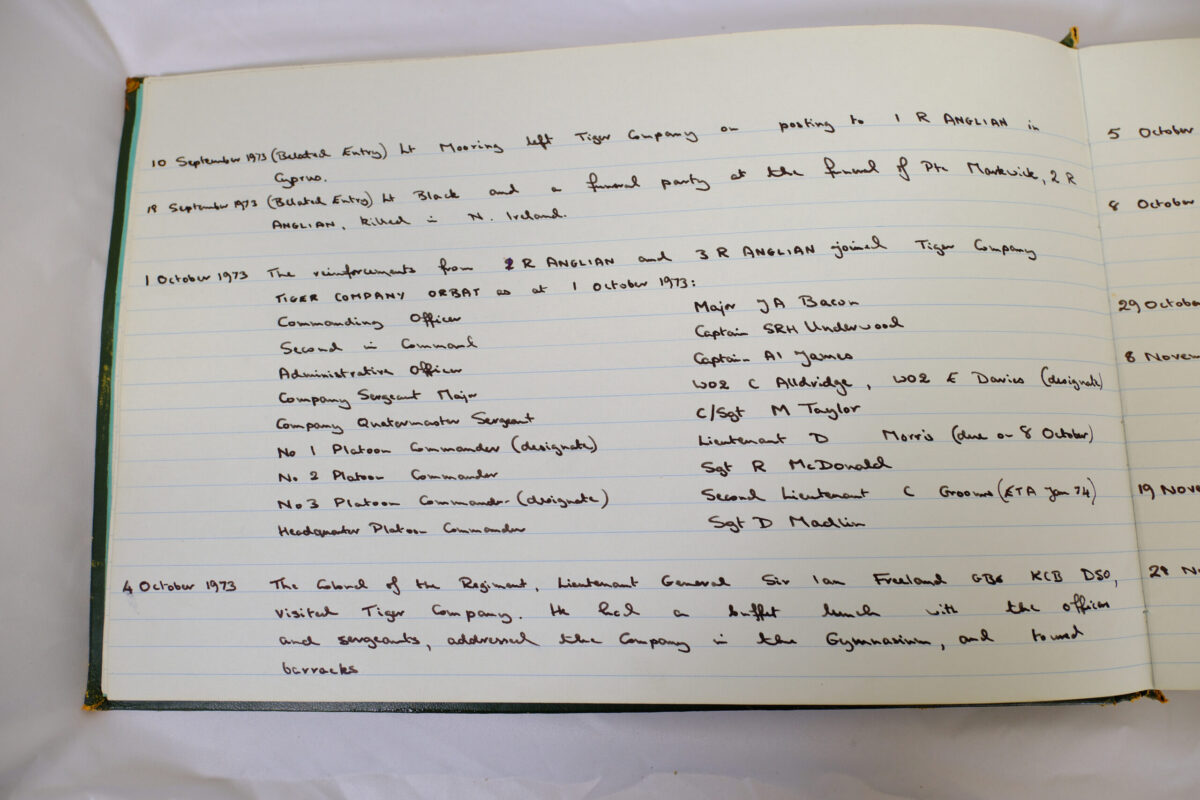 10 September 1973 (Belated Entry) Lt Mooring left Tiger Company on posting to 1 R ANGLIAN in
Cyprus.
18 September 1973 (Belated Entry) Lt Black and a funeral party at the funeral of Pte Markwick, 2 R
ANGLIAN, killed in N. Ireland.
1 October 1973 The reinforcements from 2 R ANGLIAN and 3 R ANGLIAN joined Tiger Company
TIGER COMPANY ORBAT as at 1 October 1973:
Commanding Officer Major JA Bacon
Second in Command Captain SRH Underwood
Administrative Officer Captain AI James
Company Sergeant Major WO2 C Alldridge, WO2 E Davies (designate)
Company Quatermaster Sergeant C/Sgt M Taylor
No 1 Platoon Commander (designate) Lieutenant D Morris (due on 8 October)
No. 2 Platoon Commander Sgt R McDonald
No 3 Platoon Commander (designate) Second Lieutenant C Groom (ETA Jan 74)
Headquarter Platoon Commander Sgt D Madlin
4 October 1973 The Colonel of the Regiment, Lieutenant General Sir Ian Freeland GBE KCB DSO,
visited Tiger Company. He had a buffet lunch with the officers
and sergeants, addressed the Company in the Gymnasium, and toured
barracks
5 October
8 October
29 Octobe
8 Novem
19 Nove
28 No